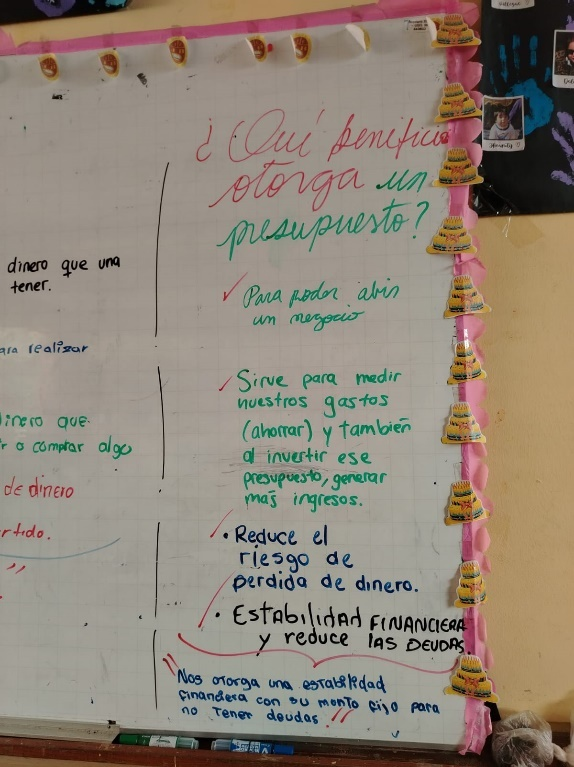 dinero que una
tener.
ara realizar
dinero que
r o comprar algo
de dinero
rtido.
¿Qué beneficio
otorga un
presupuesto?
Para poder abrir
un negocio
Sirve para medir
nuestros gastos
(ahorrar) y también
al invertir ese
presupuesto, generar
más ingresos.
• Reduce el
riesgo de
perdida de dinero.
• Estabilidad FINANCIERA
y reduce LAS DEUDAS.
"Nos otorga una estabilidad
financiera con su monto fijo para
no tener deudas."